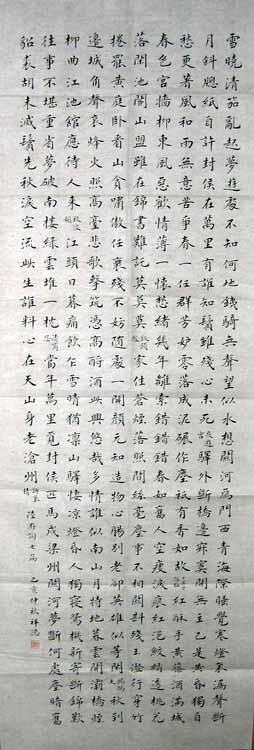 雪曉清笳亂起夢遊處不知何地鐵騎無聲望似水想關河雁門西青海際睡覺寒燈裏漏聲斷
月斜窗紙自許封侯在萬里有誰知鬢雖殘心未死夜遊宮驛外斷橋邊寂寞開無主已是黃昏獨自
愁更著風和雨無意苦爭春一任群芳妒零落成泥碾作塵祇有香如故卜算子紅酥手黃藤酒滿城
春色宮牆柳東風惡歡情薄一懷愁緒幾年離索錯錯錯春如舊人空瘦淚痕紅浥鮫綃透桃花
落閒池閣山盟雖在錦書難託莫莫莫釵頭鳳家住蒼煙落照間絲毫塵事不相關斟殘玉瀣行穿竹
捲罷黃庭臥看山貪嘯傲任衰殘不妨隨處一開顏元知造物心腸別老却英雄似等閒鷓鴣天秋到
邊城角聲哀烽火照高臺悲歌擊筑憑高酹酒此興悠哉多情誰似南山月特地暮雲開灞橋煙
柳曲江池館應待人來秋波媚江頭日暮痛飲乍雪晴猶凜山驛淒涼燈昏人獨寢鴛機新寄斷錦歎
往事不堪重省夢破南樓綠雲堆一枕清商怨當年萬里覓封侯匹馬戍梁州關河夢斷何處塵暗舊
貂裘胡未滅鬢先秋淚空流此生誰料心在天山身老滄州訴衷情 陸游詞七篇 乙亥仲秋祥德